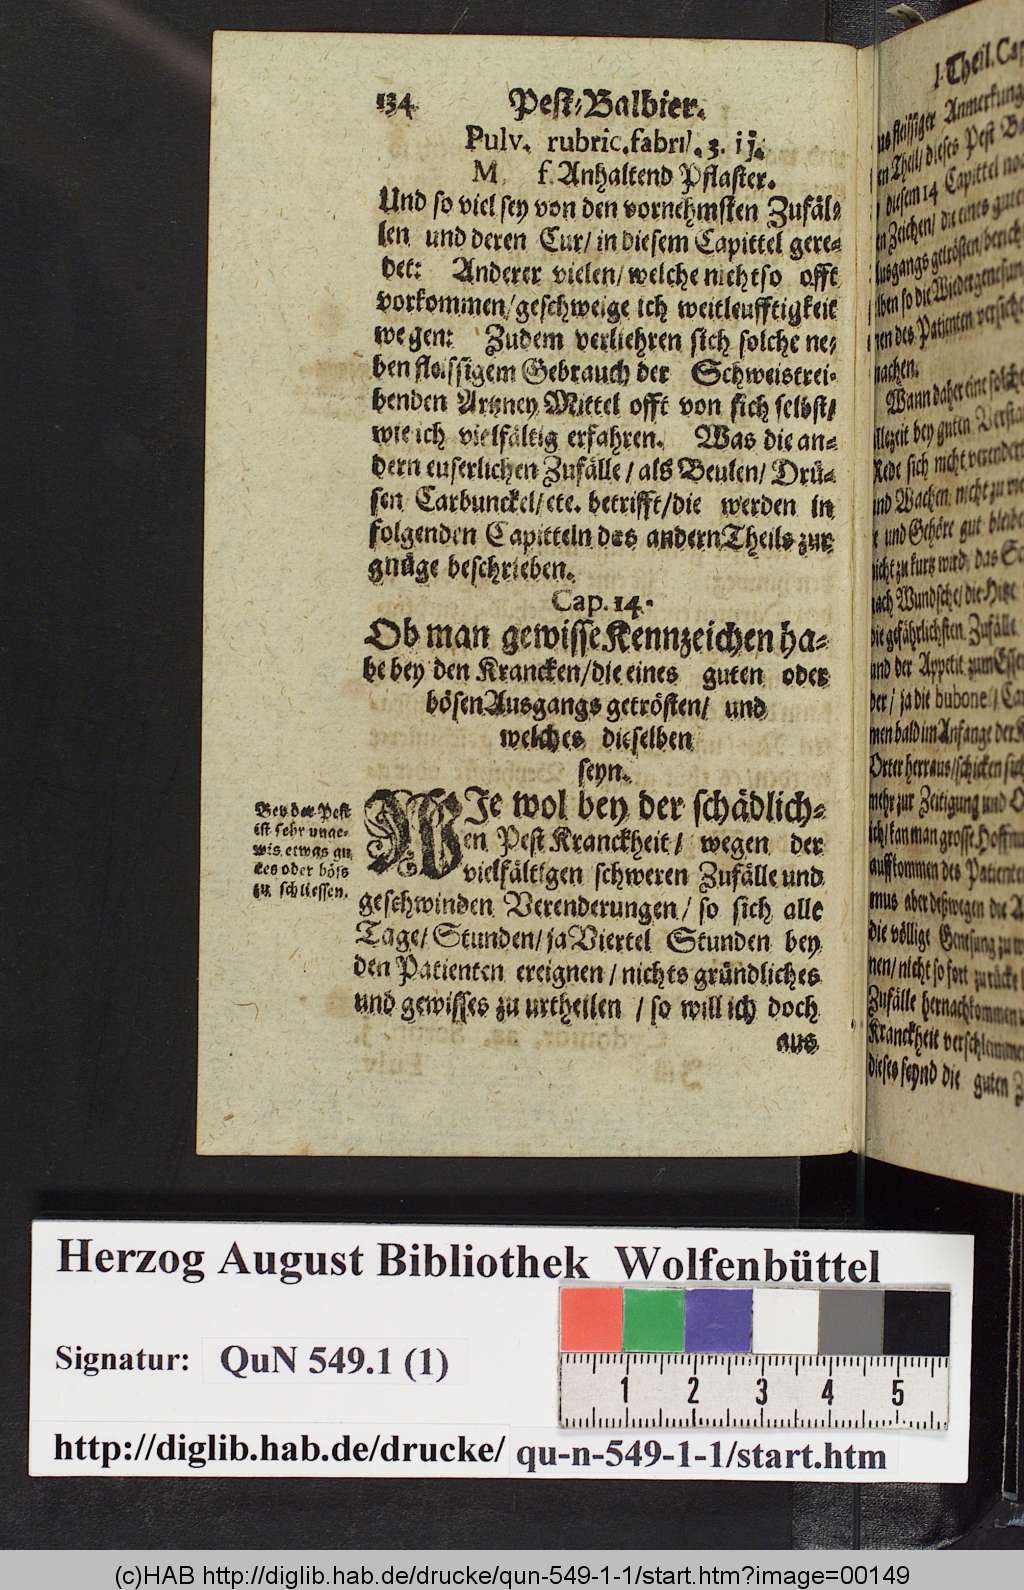 134 Pest-Balbier.
Pulv. rubric. fabril. ʒ. ij.
M f. Anhaltend Pflaster.
Und so viel sey von den vornehmsten Zufäl-
len und deren Cur/ in diesem Capittel gere-
det: Anderer vielen/ welche nicht so offt
vorkommen/ geschweige ich weitleufftigkeit
wegen: Zudem verliehren sich solche ne-
ben fleissigem Gebrauch der Schweistrei-
benden Artzney Mittel offt von sich selbst/
wie ich vielfältig erfahren. Was die an-
dern euserlichen Zufälle/ als Beulen/ Drü-
sen Carbunckel/ etc. betrifft/ die werden in
folgenden Capitteln des andern Theils zur
gnüge beschrieben.
Cap. 14.
Ob man gewisse Kennzeichen ha-
be bey den Krancken/ die eines guten oder
bösen Ausgangs getrösten/ und
welches dieselben
seyn.
Bey der Pest
ist sehr unge-
wis, etwas gu
tes oder böss
zu schliessen.
WIe wol bey der schädlich-
en Pest Kranckheit/ wegen der
vielfältigen schweren Zufälle und
geschwinden Verenderungen/ so sich alle
Tage/ Stunden/ ja Viertel Stunden bey
den Patienten ereignen/ nichts gründliches
und gewisses zu urtheilen/ so will ich doch
aus
I. Theil. Cap
fleissiger Anmerkung
Theil/ dieses Pest Ba
diesem 14 Capittel no
Zeichen/ die eines guten
Ausgangs getrösten/ bericht
so die Wiedergenesun
des Patienten versiche
machen.
Wann daher eine solche
allezeit bey guten Versta
Rede sich nicht verendert
und Wachen nicht zu vie
und Gehöre gut bleibe
nicht zu kurtz wird, das
nach Wundsche/ die Hitze
die gefährlichsten Zufälle
und der Appetit zum Essen
der/ ja die bubone/ Car
men bald im Anfange der K
Orter herraus/ schicken sich
mehr zur Zeitigung und
ich/ kan man grosse Hoffnu
aufkommen des Patienten
mus aber deßwegen die
die völlige Genesung zu
nen/ nicht so fort zu rücke
Zufälle hernachkommen
Kranckheit verschlimmer
dieses seynd die guten Z
Herzog August Bibliothek Wolfenbüttel
Signatur: QuN 549.1 (1)
1 2 3 4 5
http://diglib.hab.de/drucke/ qu-n-549-1-1/start.htm
(c)HAB http://diglib.hab.de/drucke/qun-549-1-1/start.htm?image=00149